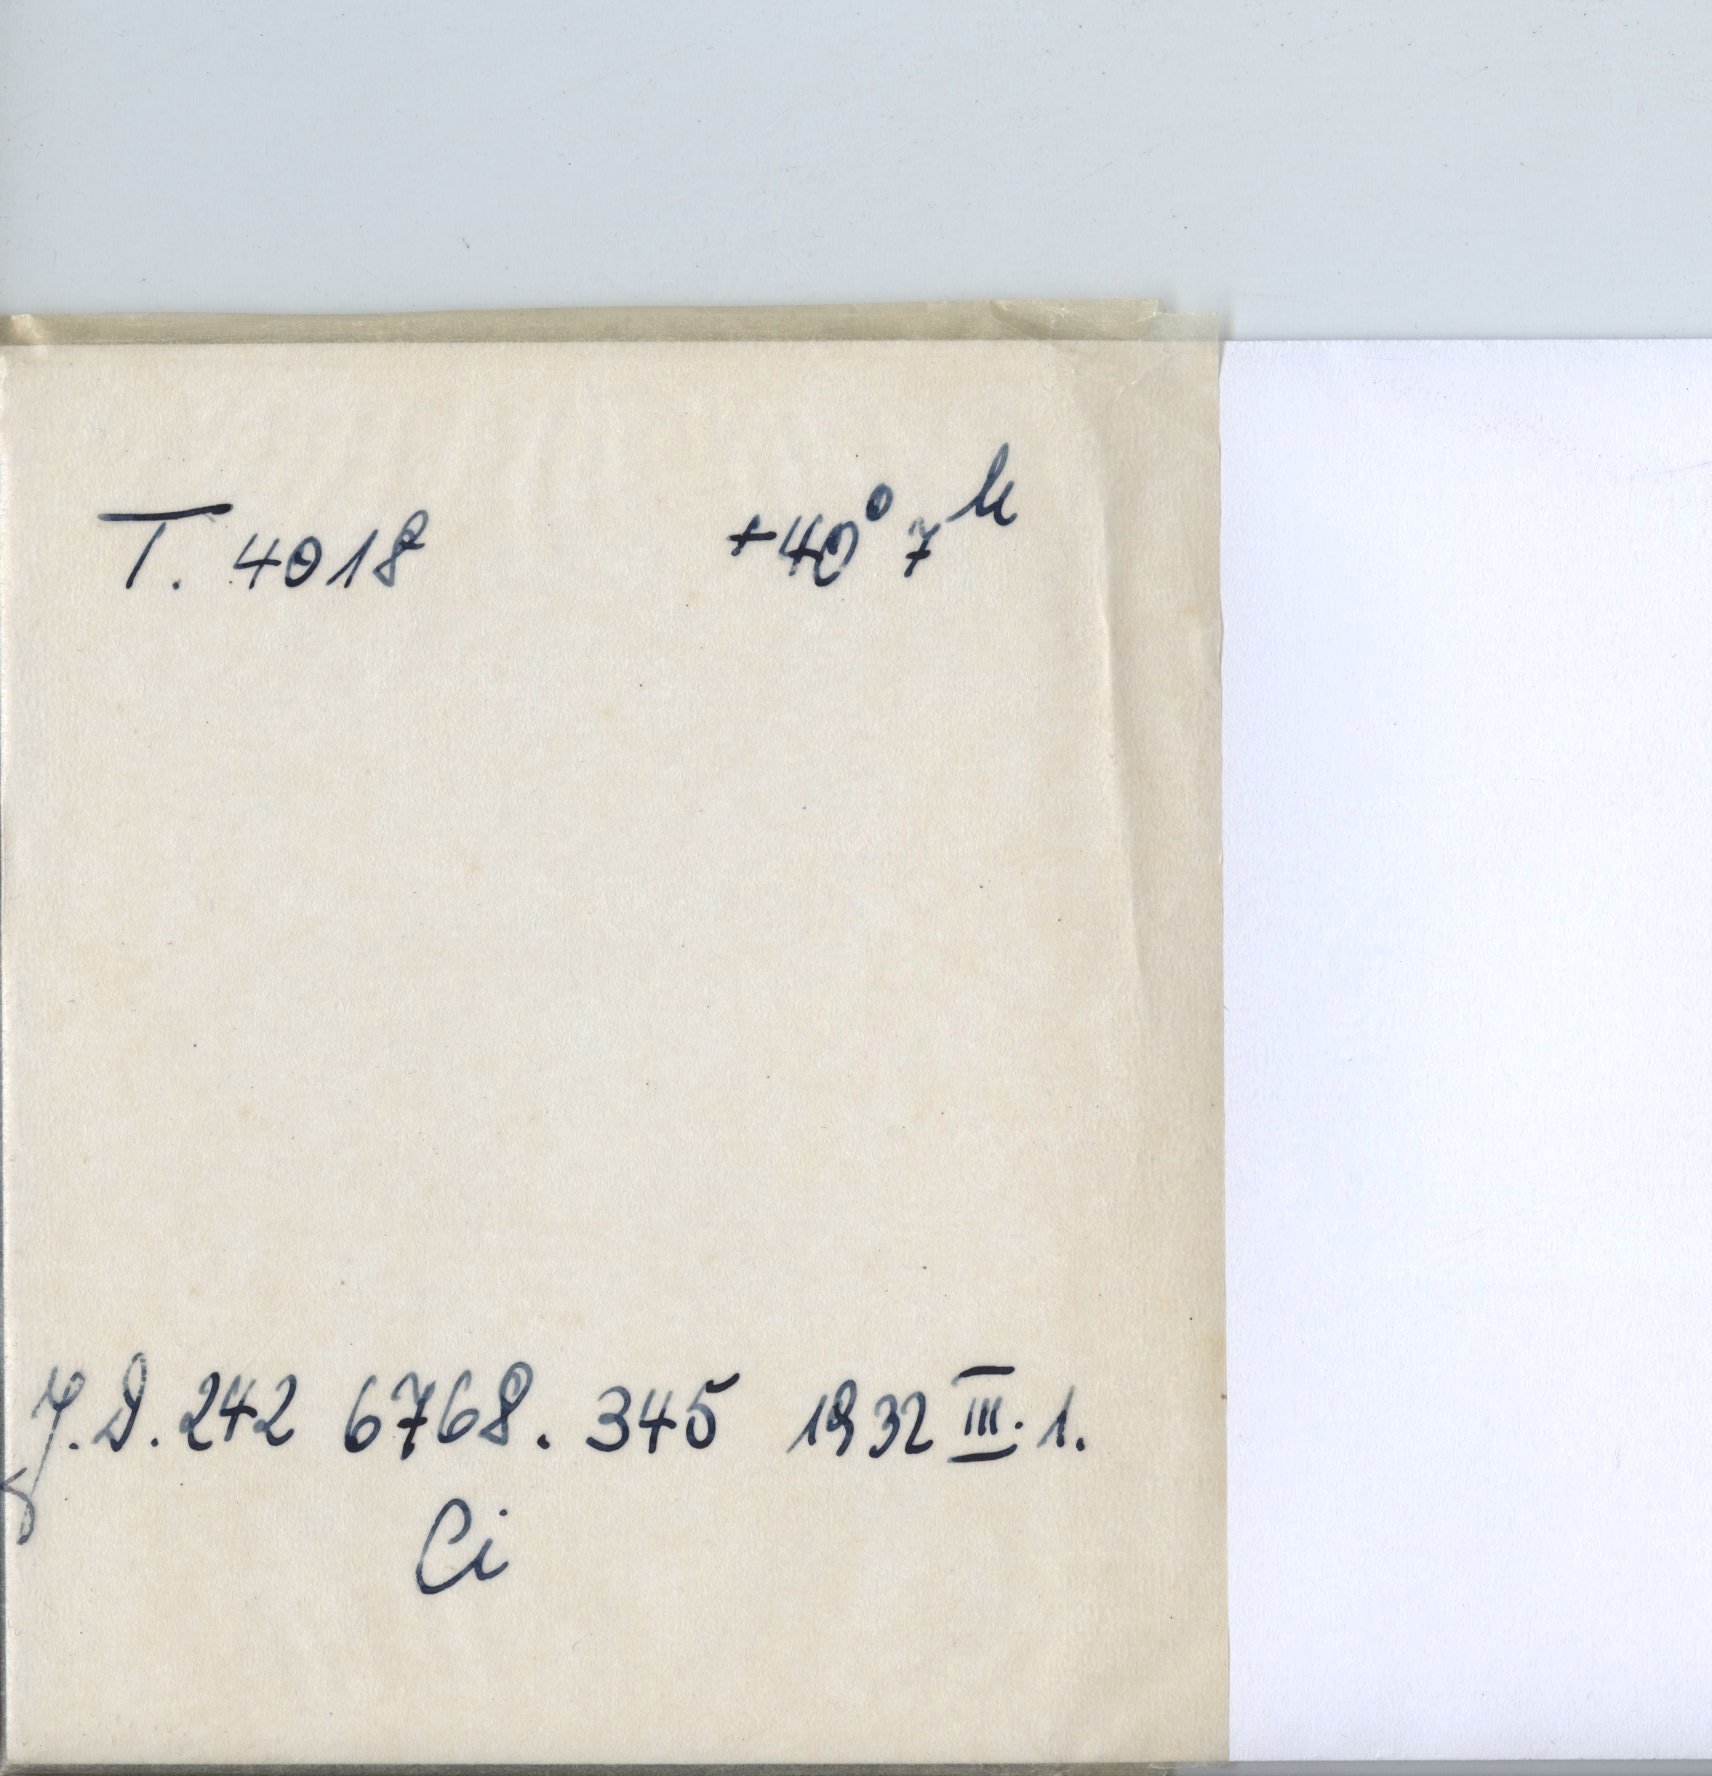 T. 4018 +40° 7ʰ
J.D. 242 6768. 345 1932 III. 1.
Ci